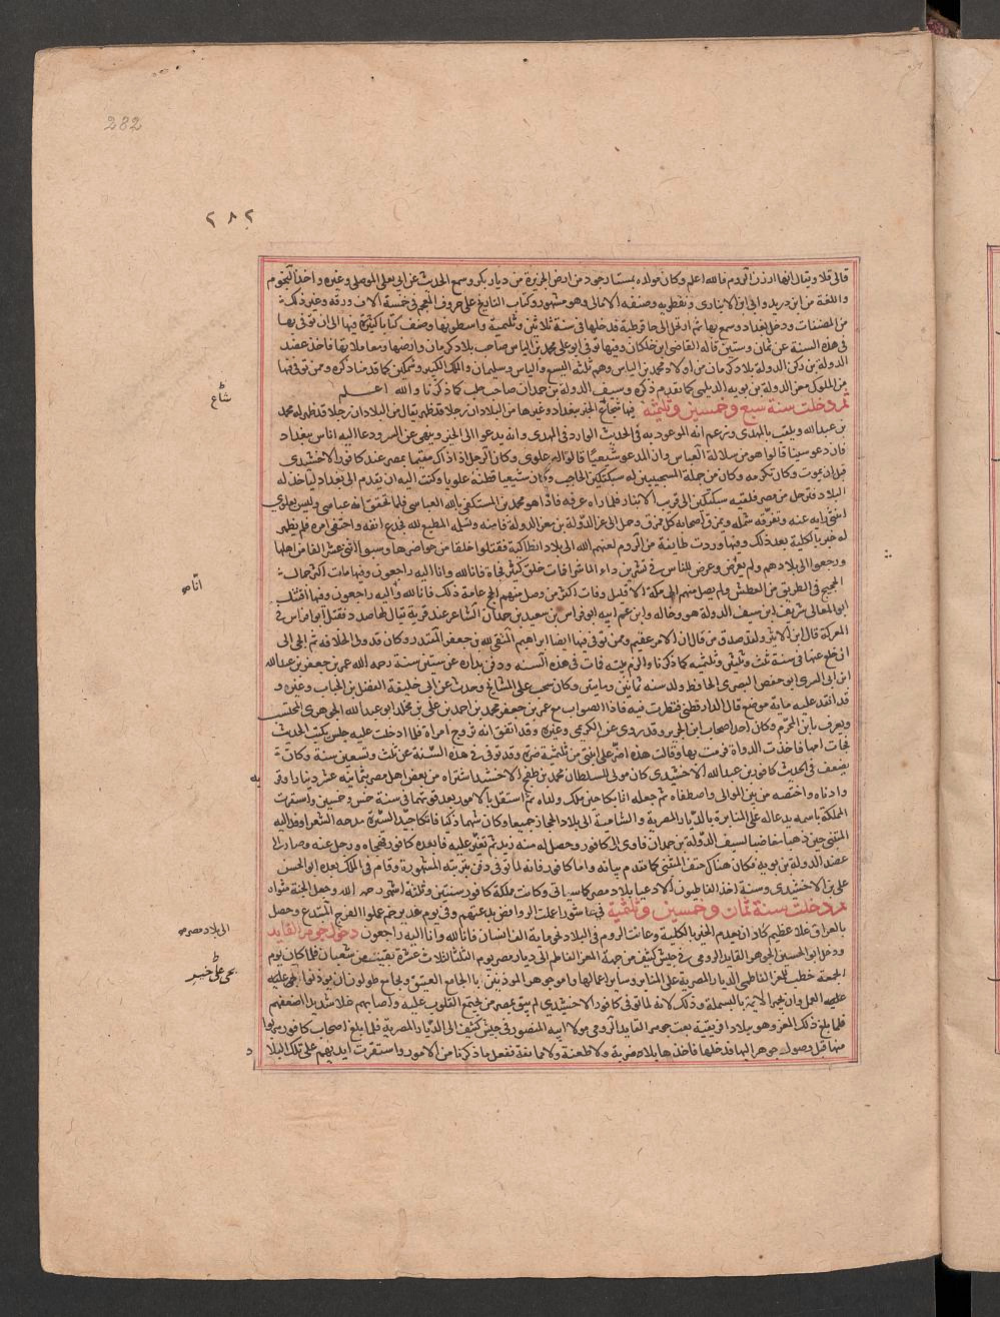 282
٢٨٢
قالى قلا ويقال انها ارزن الروم فالله اعلم وكان مولده بمنازجرد من ارض الجزيرة من ديار بكر وسمع الحديث عن ابى يعلى الموصلى وغيره واخذ النحو م
واللغة من ابن دريد وابى ابن الانبارى ونفطويه وصنف الامالى وهو مشهور وكتاب التاريخ على حروف المعجم فى خمسة الاف ورقة وغير ذلك
من المصنفات ودخل بغداد وسمع بها ثم ارتحل الى قرطبة فدخلها فى سنة ثلاثين وثلثمية واستوطنها وصنف كتبا كثيرة فيها الى ان توفى بها
فى هذه السنة عن ثمان وستين قاله القاضى ابن خلكان وفيها توفى ابو على محمد بن الياس صاحب بلاد كرمان وارضها ومعاملاتها فاخذ عضد
الدولة بن ركن الدولة بلاد كرمان من اولاد محمد بن الياس وهم ثلثه اليسع والياس وسليمان والملك الكبير وشمكير كما قدمنا ذكره وممن توفى فيها
من الملوك معز الدولة بن بويه الديلمى كما تقدم ذكره وسيف الدولة بن حمدان صاحب حلب كما ذكرنا والله اعلم
ثم دخلت سنة سبع وخمسين وثلثمئة فيها شاع الخبر ببغداد وغيرها من البلاد ان رجلا قد ظهر يقال له محمد
بن عبدالله ويلقب بالمهدى وزعم انه الموعود به فى الحديث الوارد فى المهدى وانه يدعو الى الخير وينهى عن الشر ودعا اليه اناس ببغداد
فان دعو سنيا قالوا هو من سلالة العباس وان المدعو شيعيا قالوا له علوى وكان الرجل اذ ذاك مقيما بمصر عند كافور الاخشيدى
قبل ان يموت وكان يكرمه وكان من جملة المستجيبين له سبكتكين الحاجب وكان شيعيا فظنه علويا وكتب اليه ان يقدم الى بغداد لياخذ له
البلاد فترحل من مصر فلقيه سبكتكين الى قرب الانبار فلما راه عرفه فاذا هو محمد بن المستكفى بالله العباسى فلما تحقق انه عباسى وليس بعلوى
انثنى رايه عنه وتفرقه شمله ومزق اصحابه كل ممزق وحمل الى عز الدولة بن معز الدولة فامنه وتسلمه المطيع لله فجدع انفه واختفى امره فلم يظهر
له خبر بالكلية بعد ذلك وفيها وردت طائفة من الروم لعنهم الله الى بلاد انطاكية فقتلوا خلقا من حواضرها وسبوا اثنى عشر الفا من اهلها
ورجعوا الى بلادهم ولم يعرض وعرض للناس فى تشرين داء الماشرا فمات خلق كثير فجأة فانا لله وانا اليه راجعون وفيها مات اكثر جمال
الحجيج فى الطريق من العطش ولم يصل منهم الى مكة الا قليل ومات اكثر من وصل منهم الحج عامة ذلك فانا لله وانا اليه راجعون وفيها اقتتل
ابو المعالى شريف ابن سيف الدولة هو وخاله وابن عم ابيه ابو فراس بن سعيد بن حمدان الشاعر عند قرية يقال لها صدد فقتل ابو فراس فى
المعركة قال ابن الاثير ولقد صدق من قال ان الامر عقيم وممن توفى فيها ايضا ابراهيم المتقى لله بن جعفر المقتدر وكان قد ولى الخلافه ثم الجئ الى
ان خلع عنها فى سنة ثلث وثلثين وثلثمئه كما ذكرنا والزم بيته فمات فى هذه السنه ودفن بداره عن ستين سنة رحمه الله عمر بن جعفر بن عبدالله
ابن ابى السرى ابو حفص البصرى الحافظ ولد سنه ثمانين ومايتين وكان ينتخب على المشايخ وحدث عن ابى خليفة الفضل بن الحباب وغيره و
قد انتقد عليه ماية موضع قال الدارقطنى فنظرت فيه فاذا الصواب مع عمر بن جعفر محمد بن احمد بن على بن مخلد ابو عبدالله الجوهرى المحتسب
ويعرف بابن المحرم وكان احد اصحاب ابن الجرير وقد روى عن الكديمى وغيره وقد اتفق انه تزوج امراة فلما دخلت عليه جلس يكتب الحديث
فجات امها فاخذت الدواة فرمت بها وقالت هذه اضر على ابنتى من ثلثمية ضرة وقد توفى فى هذه السنة عن ثلث وتسعين سنة وكانت
يضعف فى الحديث كافور بن عبدالله الاخشيدى كان مولى السلطان محمد بن طغج الاخشيد اشتراه من بعض اهل مصر بثمانية عشر دينارا وقر
وادناه واختصه من بين الموالى واصطفاه ثم جعله اتابكا حين ملك ولداه ثم استقل بالامور بعد موتهما فى سنة خمس وخمسين واستقرت
المملكة باسمه يدعا له على المنابر بالديار المصرية والشامية الى بلاد الحجاز جميعا وكان شهما ذكيا فاتكا جيد السيرة مدحه الشعرا وفد اليه
المتنبى حين ذهب مغاضبا لسيف الدولة بن حمدان فاوى الى كافور وحصل له منه رفد ثم تغير عليه فابعده كافور فهجاه ورحل عنه وصار الى
عضد الدولة بن بويه فكان هناك حتف المتنبى كما تقدم بيانه واما كافور فانه لما توفى دفن بتربته المشهورة وقام فى الملك بعده ابو الحسن
على بن الاخشيدى وسنة اخذ الفاطميون الادعيا بلاد مصر كما سياتى وكانت مملكة كافور سنتين وثلثة اشهر رحمه الله وجعل الجنة مثواه
ثم دخلت سنة ثمان وخمسين وثلثمية فى عاشورا عملت الروافض بدعتهم وفى يوم غدير خم عملوا الفرح المبتدع وحصل
بالعراق غلا عظيم كاد ان يعدم الخبز بالكلية وعاثت الروم فى البلاد فى ماية الف انسان فانا لله وانا اليه راجعون دخول جوهر القايد
ودخل ابو الحسين جوهر القايد الرومى فى جيش كثيف من جهة المعز الفاطمى الى ديار مصر يوم الثلثا لثلاث عشرة بقيت من شعبان فلما كان يوم
الجمعة خطب للمعز الفاطمى الديار المصرية على المنابر وساير اعمالها وامر جوهر الموذنين بالجامع العتيق وبجامع طولون ان يوذنوا بحى على
عليه العمل وان يجهر الائمة بالبسملة وذلك لانه لما توفى كافور الاخشيدى لم يبق بمصر من تجتمع القلوب عليه واصابهم غلا شديد اضعفهم
فلما بلغ ذلك المعز وهو ببلاد افريقية بعث جوهر القايد الرومى مولا ابيه المنصور فى جيش كثيف الى الديار المصرية فلما بلغ اصحاب كافور هربوا
منها قبل وصول جوهر اليها فدخلها فاخذها بلا ضربة ولا طعنة ولا ممانعة ففعل ما ذكرنا من الامور واستقرت ايديهم على تلك البلا
شاع
به
الى بلاد مصر
بحى على خير
د